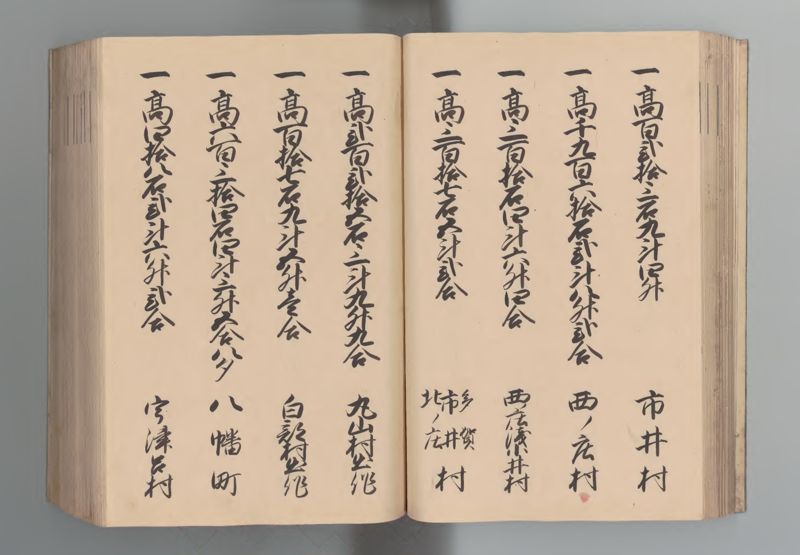 一高百弐拾三石九斗四升 市井村
一高千九百六拾石弐斗八升弐合 西ノ庄村
一高三百拾石四斗六升四合 西庄浅井村
一高三百拾七石五斗弐合 多賀市井北ノ庄村
一高弐百弐拾五石三斗九升九合 丸山村出作
一高百拾七石九斗五升壱合 白部村出作
一高六百三拾四石四斗三升五合八夕 八幡町
一高四拾八石弐斗六升弐合 宇津呂村